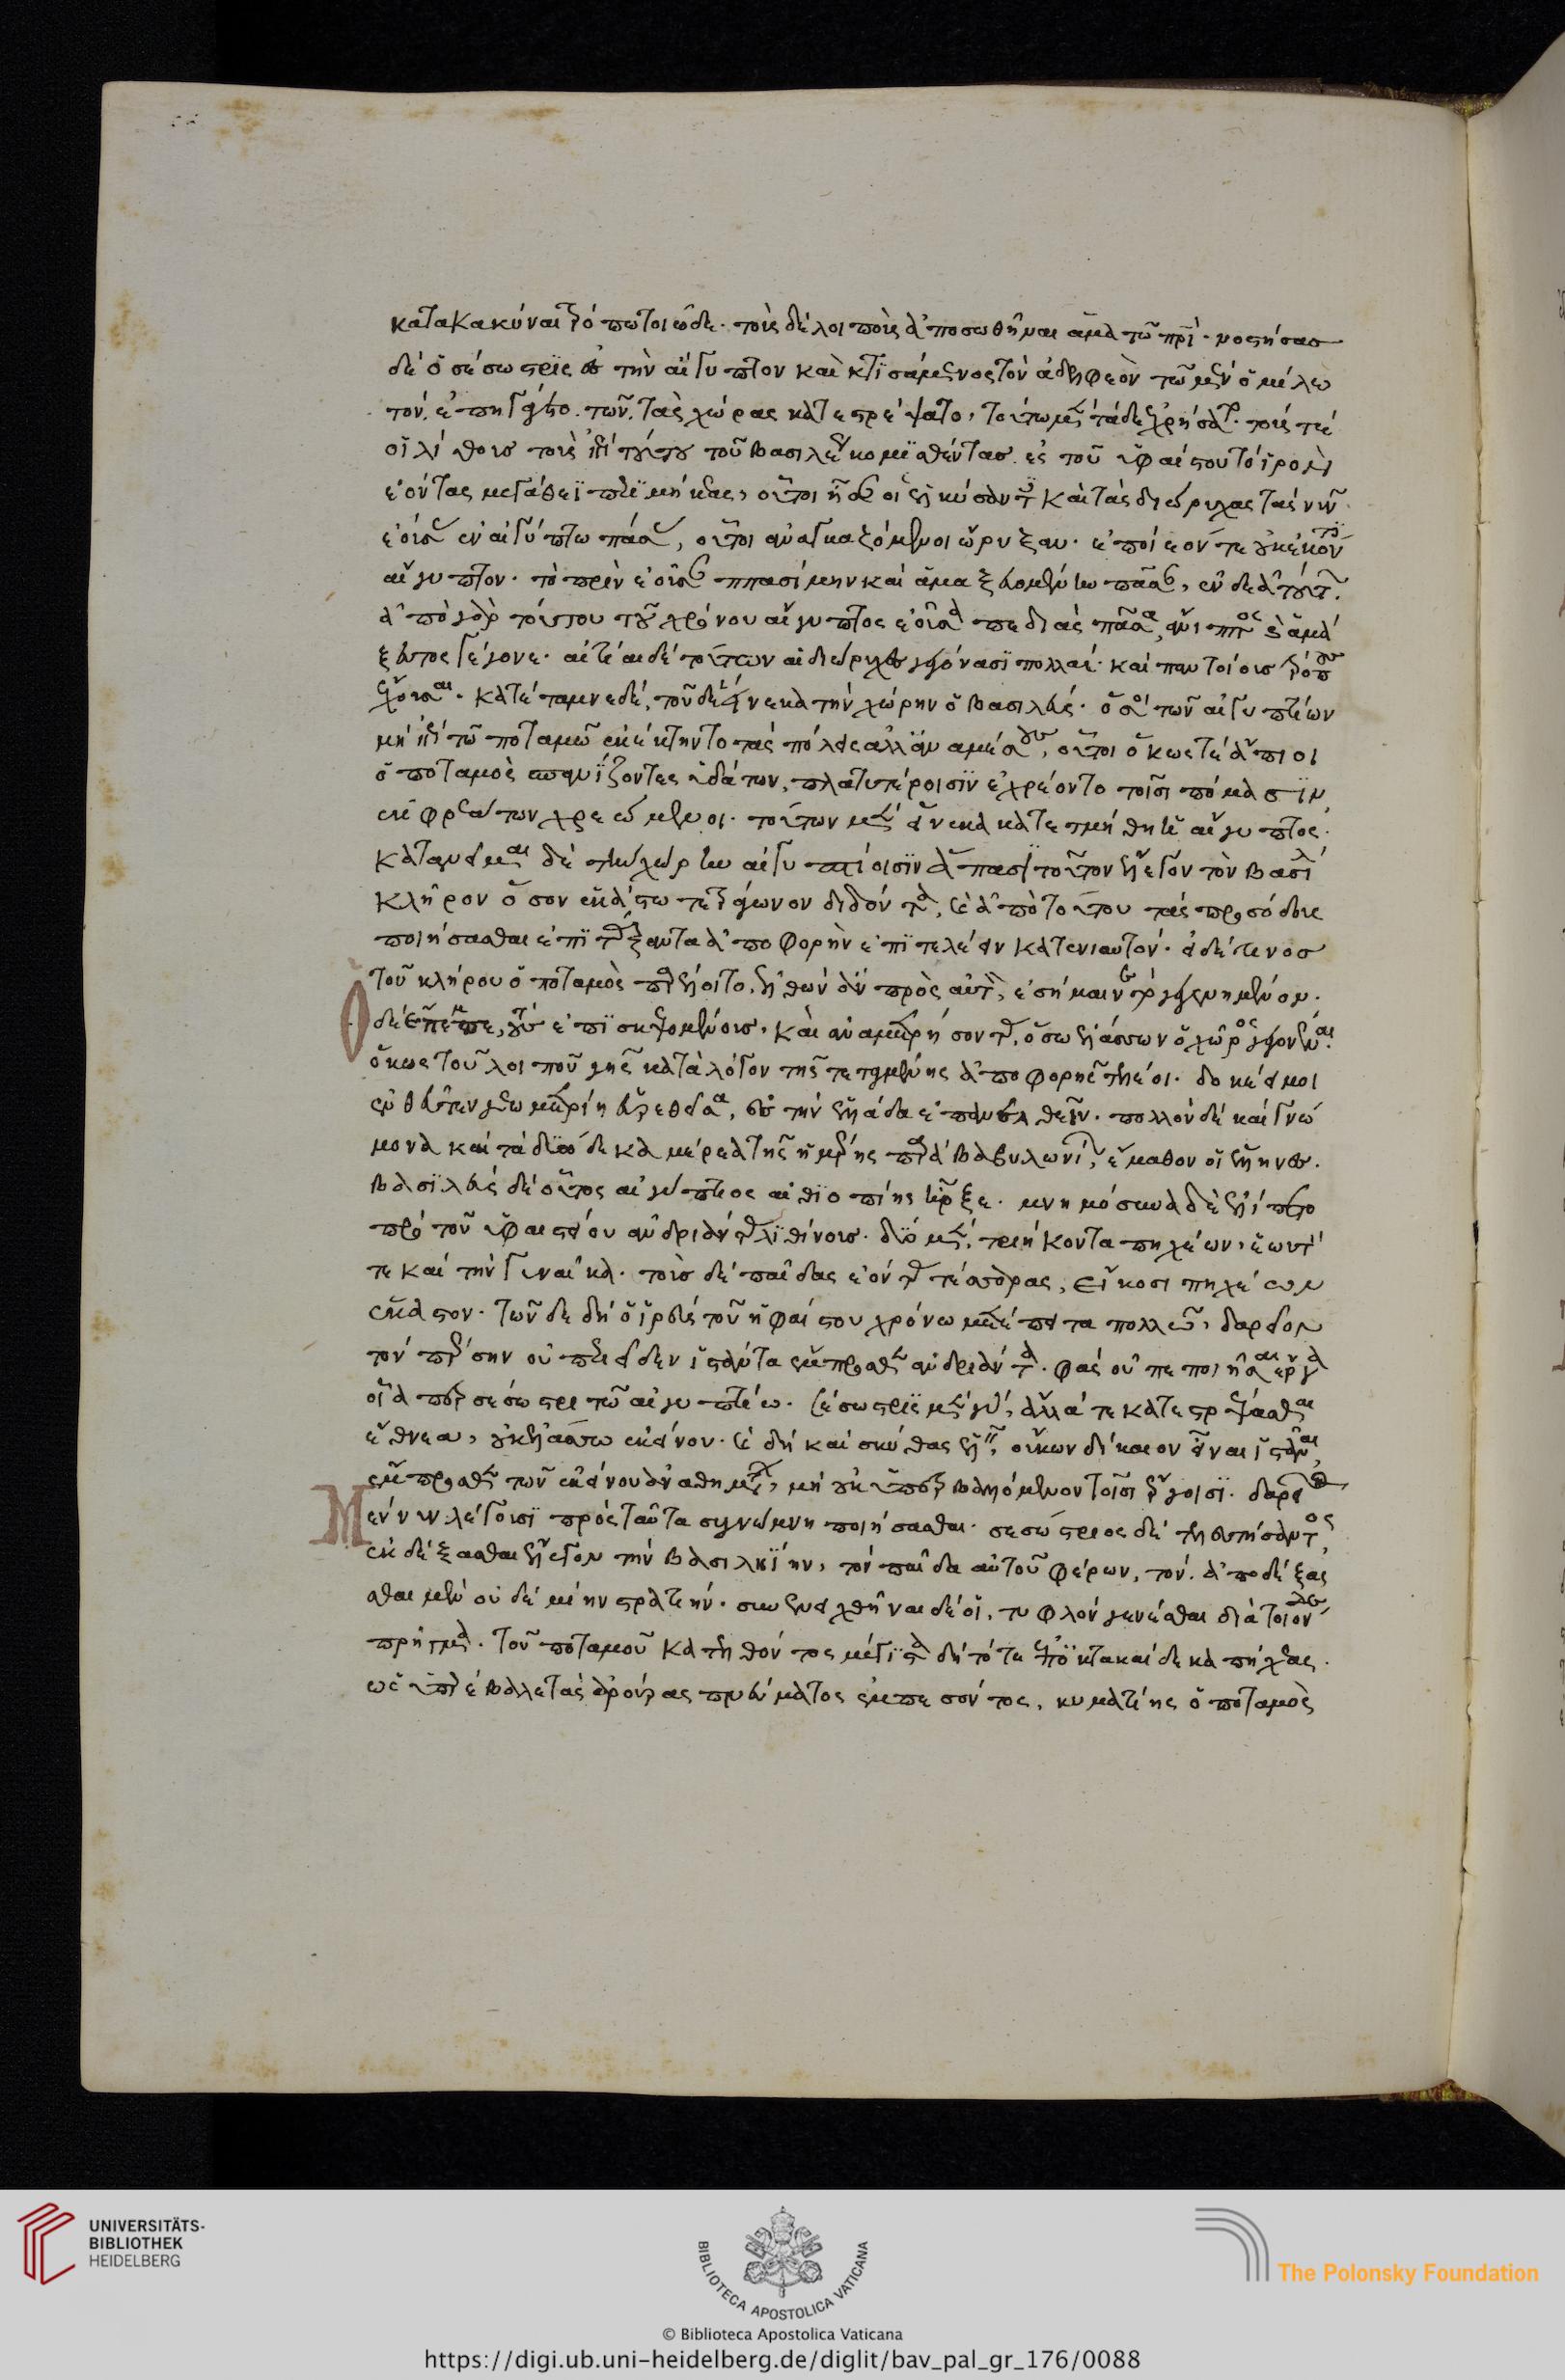 κατακακύναι τρόπω τοιῶδε· τοὺς δὲ λοιποὺς ἀποσωθῆναι ἅμα τῶ πρί· νοστήσας
δὲ ὁ σέσωστρις ἐς τὴν αἴγυπτον καὶ τισάμενος τὸν ἀδελφεὸν τῶ μὲν ὁμίλω
τὸν ἐπηγάγετο τῶν τὰς χώρας κατεστρέψατο, τούτω μὲν τάδε ἐχρήσατο· τούς τέ
οἱ λίθους τοὺς ἐπὶ τούτου τοῦ βασιλέος κομισθέντας ἐς τοῦ ὑφαίστου τὸ ἱρὸν
ἐόντας μεγάθεϊ περιμήκεας, οὗτοι ἦσαν οἱ ἑλκύσαντες καὶ τὰς διώρυχας τὰς νῦν
ἐούσας ἐν αἰγύπτω πάσας, οὗτοι ἀναγκαζόμενοι ὤρυξαν· ἐποίεόν τε οὐκ ἑκόντες
αἴγυπτον· τὸ πρὶν ἐοῦσαν ἱππασίμην καὶ ἁμαξευομένην πᾶσαν, ἐνδεᾶ τούτων·
ἀπὸ γὰρ τούτου τοῦ χρόνου αἴγυπτος ἐοῦσα πεδιὰς πᾶσα, ἄνιππος καὶ ἀνα
ξευτος γέγονε· αἴτιαι δὲ τούτων αἱ διώρυχες γεγόνασι πολλαί· καὶ παντοίους τρόπους
ἔχουσαι· κατέταμνε δὲ, τοῦδε εἵνεκα τὴν χώρην ὁ βασιλεύς· ὅσοι τῶν αἰγυπτίων
μὴ ἐπὶ τῶ ποταμῶ ἐκέκτηντο τὰς πόλεις ἀλλ' ἀναμέσους, οὗτοι ὅκως τε ἀπίοι
ὁ ποταμὸς σπανίζοντες ὑδάτων, πλατυτέροισιν ἐχρέοντο τοῖσι πόμασιν,
ἐκ φρεάτων χρεώμενοι· τούτων μὲν εἵνεκα κατετμήθη ἡ αἴγυπτος·
κατανεῖμαι δὲ τὴν χώρην αἰγυπτίοισιν ἅπασι τοῦτον ἔλεγον τὸν βασιλέα
κλῆρον ἴσον ἑκάστω τετράγωνον διδόντα, καὶ ἀπὸ τούτου τὰς προσόδους
ποιήσασθαι ἐπιτάξαντα ἀποφορὴν ἐπιτελέειν κατενιαυτόν· εἰ δέ τινος
τοῦ κλήρου ὁ ποταμός τι παρέλοιτο, ἐλθὼν ἂν πρὸς αὐτὸν, ἐσήμαινε τὸ γεγενημένον·
ὁ δὲ ἔπεμπε, τοὺς ἐπισκεψομένους, καὶ ἀναμετρήσοντας, ὅσω ἐλάσσων ὁ χῶρος γέγονεν·
ὅκως τοῦ λοιποῦ τῆς κατὰ λόγον τῆς τεταγμένης ἀποφορῆς τελέοι· δοκέει μοι
ἐνθεῦτεν γεωμετρίη εὑρεθεῖσα, ἐς τὴν ἑλλάδα ἐπανελθεῖν· πόλον δὲ καὶ γνώ
μονα καὶ τὰ δυώδεκα μέρεα τῆς ἡμέρης παρὰ βαβυλωνίων, ἔμαθον οἱ ἕλληνες·
βασιλεὺς δὲ οὗτος αἰγύπτιος αἰθιοπίης ἦρξε· μνημόσυνα δὲ ἐλίπετο
πρὸ τοῦ ὑφαιστείου ἀνδριάντας λιθίνους· δύο μὲν, τριήκοντα πηχέων, ἑωυτόν
τε καὶ τὴν γυναῖκα· τοὺς δὲ παῖδας ἐόντας τέσσερας, εἴκοσι πηχέων
ἕκαστον· τῶν δὲ δὴ ὁ ἱρεὺς τοῦ ἡφαίστου χρόνω μετέπειτα πολλῶ, δαρεῖον
τὸν πέρσην οὐ περιεῖδεν ἱστάντα ἔμπροσθεν ἀνδριάντα· φὰς οὔ πεποιῆσθαι ἔργα
οἷά περ σεσώστρι τῶ αἰγυπτίω· σέσωστριν μὲν γὰρ, ἄλλά τε καταστρέψασθαι
ἔθνεα, οὐκ ἐλάσσω ἐκείνου· καὶ δὴ καὶ σκύθας ἑλεῖν, οὔκων δίκαιον εἶναι ἱστάναι
ἔμπροσθεν τῶν ἐκείνου ἀναθημάτων, μὴ οὐκ ὑπερβαλλόμενον τοῖσι ἔργοισι· δαρεῖον
μέν νυν λέγουσι πρὸς ταῦτα συγγνώμην ποιήσασθαι· σεσώστριος δὲ τελευτήσαντος,
ἐκδέξασθαι ἔλεγον τὴν βασιληίην, τὸν παῖδα αὐτοῦ φέρων, τὸν ἀποδέξας
θαι μὲν οὐδεμίην στρατιήν· συνενειχθῆναι δέ οἱ, τυφλὸν γενέσθαι διὰ τοιόνδε
πρῆγμα· τοῦ ποταμοῦ κατελθόντος μέγιστα δὴ τότε ἐπ' ὀκτωκαίδεκα πήχεας·
ὡς ὑπερέβαλε τὰς ἀρούρας πνεύματος ἐμπεσόντος, κυματίης ὁ ποταμὸς
UNIVERSITÄTS-
BIBLIOTHEK
HEIDELBERG
BIBLIOTECA APOSTOLICA VATICANA
The Polonsky Foundation
© Biblioteca Apostolica Vaticana
https://digi.ub.uni-heidelberg.de/diglit/bav_pal_gr_176/0088